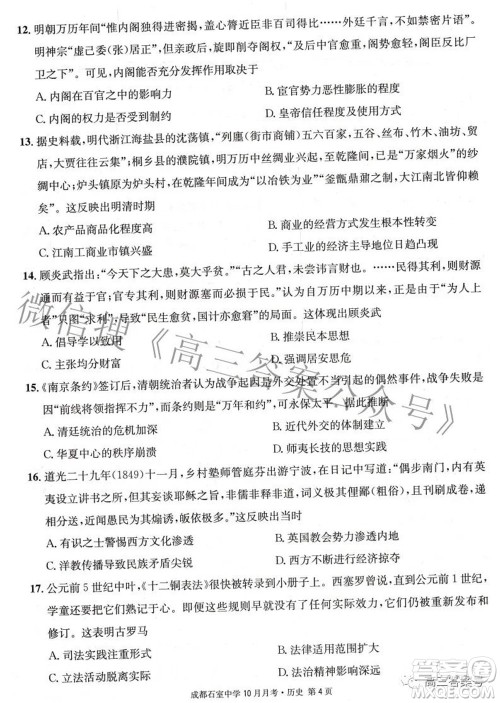 12. 明朝万历年间“惟内阁独得进密揭，凡鳌近臣非百司得比……外廷千言，不禁密片语”。
明神宗“虚己委(张)居正”，亲政后，旋即削夺阁权，“自中官愈重，阁势愈轻，阁臣反比厂
卫之下”。内阁能否充分发挥作用取决于
A. 内阁在百官之中的影响力
B. 宦官势力恶性膨胀的程度
C. 内阁的权力是否受到制约
D. 皇帝信任使用内阁的程度
13. 据史料载，明代浙江海盐县的沈荡镇，“列廛(街市商铺)五六百家，五谷、丝布、竹木、油坊、质
店，大贾往往出其间”；桐乡县的濮院镇，明万历中丝绸业兴起，至乾隆年间，已是“万家烟火”的
绸业巨镇；炉头镇原为村落，在乾隆年间成为“以冶铁为业”“釜甑鼎鼐之制，大江南北咸仰赖
矣”。这反映出明清时期
A. 农产品商品化程度高
B. 商业的经营方式发生根本性转变
C. 江南工商业市镇兴盛
D. 手工业的进步使经济主导地位
14. 顾炎武指出：“今天下之大患，莫大乎贫。”“古之人君，未尝讳言财也。……民得其利，则财源
通而有益于君；官专其利，则财源塞而必损于民。”他认为自万历中期以来，因为“为人上
者”只图“求利”，以致“民生愈贫，国计亦愈窘”的局面。这表明顾炎武
A. 倡导学以致用
B. 推崇民本思想
C. 主张均分财富
D. 强调居安思危
15. 《南京条约》签订后，清朝统治者认为战争起因是对外交处置不当引起的偶然事件，战争失败是
因“前线将领的无能”，而条约则是“万年和约”，可永保太平。据此可知
A. 清廷统治的危机加深
B. 近代外交的体制建立
C. 华夏中心的秩序崩溃
D. 师夷长技的实践受挫
16. 道光二十九年(1849)十一月，乡村塾师管庭芬出游宁波，在日记中写道：“偶步南门，内有英
夷设立讲书之所，但其妖妄耶稣之旨，非儒非释，甚觉不伦，而愚民为其煽诱，帆布甚可恨也。”
材料反映出
A. 有识之士警惕西方文化渗透
B. 英国殖民势力渗透内地
C. 洋教传播导致民族矛盾尖锐
D. 西方列强不断进行经济掠夺
17. 公元前5世纪中叶，《十二铜表法》很快被转录到小册子上。西塞罗曾说，直到公元前1世纪，
学童还要把它们熟记于心；尽管那时它们已没有任何实际效力，它们也没有被明确地废止和
修订。这表明古罗马
A. 司法实践注重形式
B. 法律适用范围扩大
C. 立法活动与实际脱节
D. 法律传统影响深远
成都石室中学10月月考·历史 第4页
微信搜《高三答案公众号》
高三答案号